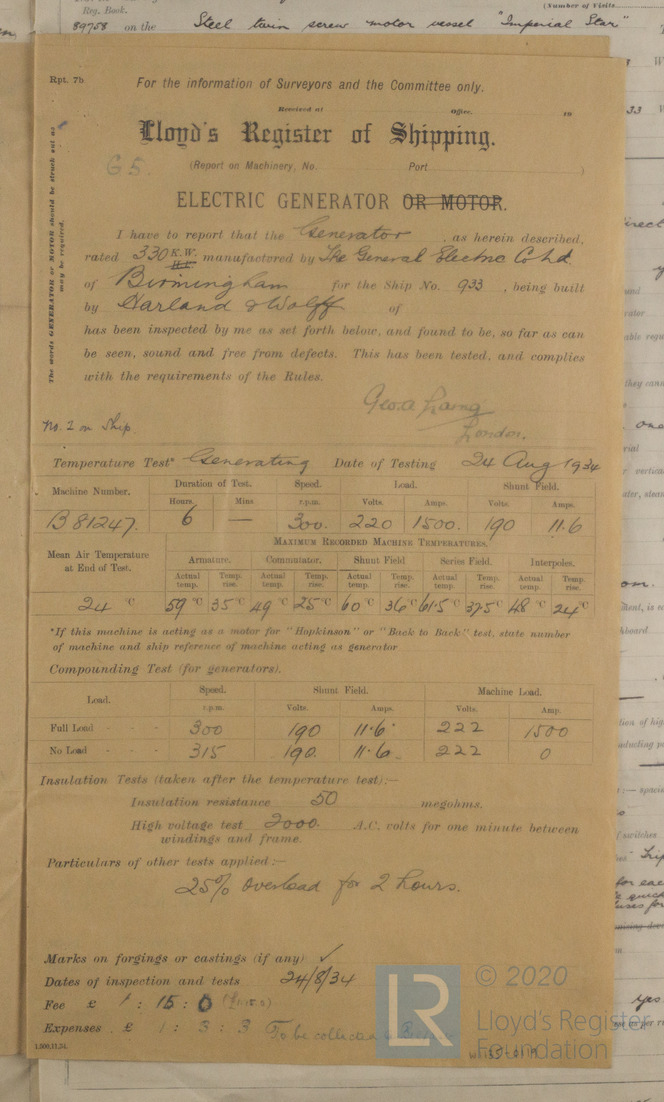 Reg. Book.
(Number of Visits
89758 on the Steel twin screw motor vessel "Imperial Star"
Rpt. 7b
For the information of Surveyors and the Committee only.
Received at Office. 19
Lloyd's Register of Shipping.
G 5.
(Report on Machinery, No. Port )
ELECTRIC GENERATOR OR MOTOR.
The words GENERATOR or MOTOR should be struck out as may be required.
I have to report that the Generator, as herein described,
rated 330 K.W. manufactured by The General Electric Co Ltd
of Birmingham for the Ship No. 933, being built
by Harland & Wolff of
has been inspected by me as set forth below, and found to be, so far as can
be seen, sound and free from defects. This has been tested, and complies
with the requirements of the Rules.
Geo. A. Laing
London.
No. 2 on Ship.
Temperature Test* Generating Date of Testing 24 Aug 1934
Machine Number. Duration of Test. Speed. Load. Shunt Field.
Hours. Mins r.p.m. Volts. Amps. Volts. Amps.
B 81247. 6 — 300. 220 1500. 190 11.6
MAXIMUM RECORDED MACHINE TEMPERATURES.
Mean Air Temperature at End of Test. Armature. Commutator. Shunt Field Series Field. Interpoles.
Actual temp. Temp. rise. Actual temp. Temp. rise. Actual temp. Temp. rise. Actual temp. Temp. rise. Actual temp. Temp. rise.
24 °C 59 °C 35 °C 49 °C 25 °C 60 °C 36 °C 61.5 °C 37.5 °C 48 °C 24 °C
*If this machine is acting as a motor for "Hopkinson" or "Back to Back" test, state number
of machine and ship reference of machine acting as generator
Compounding Test (for generators).
Load. Speed. Shunt Field. Machine Load.
r.p.m. Volts. Amps. Volts. Amp.
Full Load - - - 300 190 11.6 222 1500
No Load - - - 315 190. 11.6 222 0
Insulation Tests (taken after the temperature test):—
Insulation resistance 50 megohms.
High voltage test 2000 A.C. volts for one minute between
windings and frame.
Particulars of other tests applied:—
25% overload for 2 hours.
Marks on forgings or castings (if any) ✓
Dates of inspection and tests 24/8/34
Fee £ 1 : 15 : 0
Expenses £ 1 : 3 : 3 To be collected
1,500,11,34.
LR © 2020
Lloyd's Register
Foundation